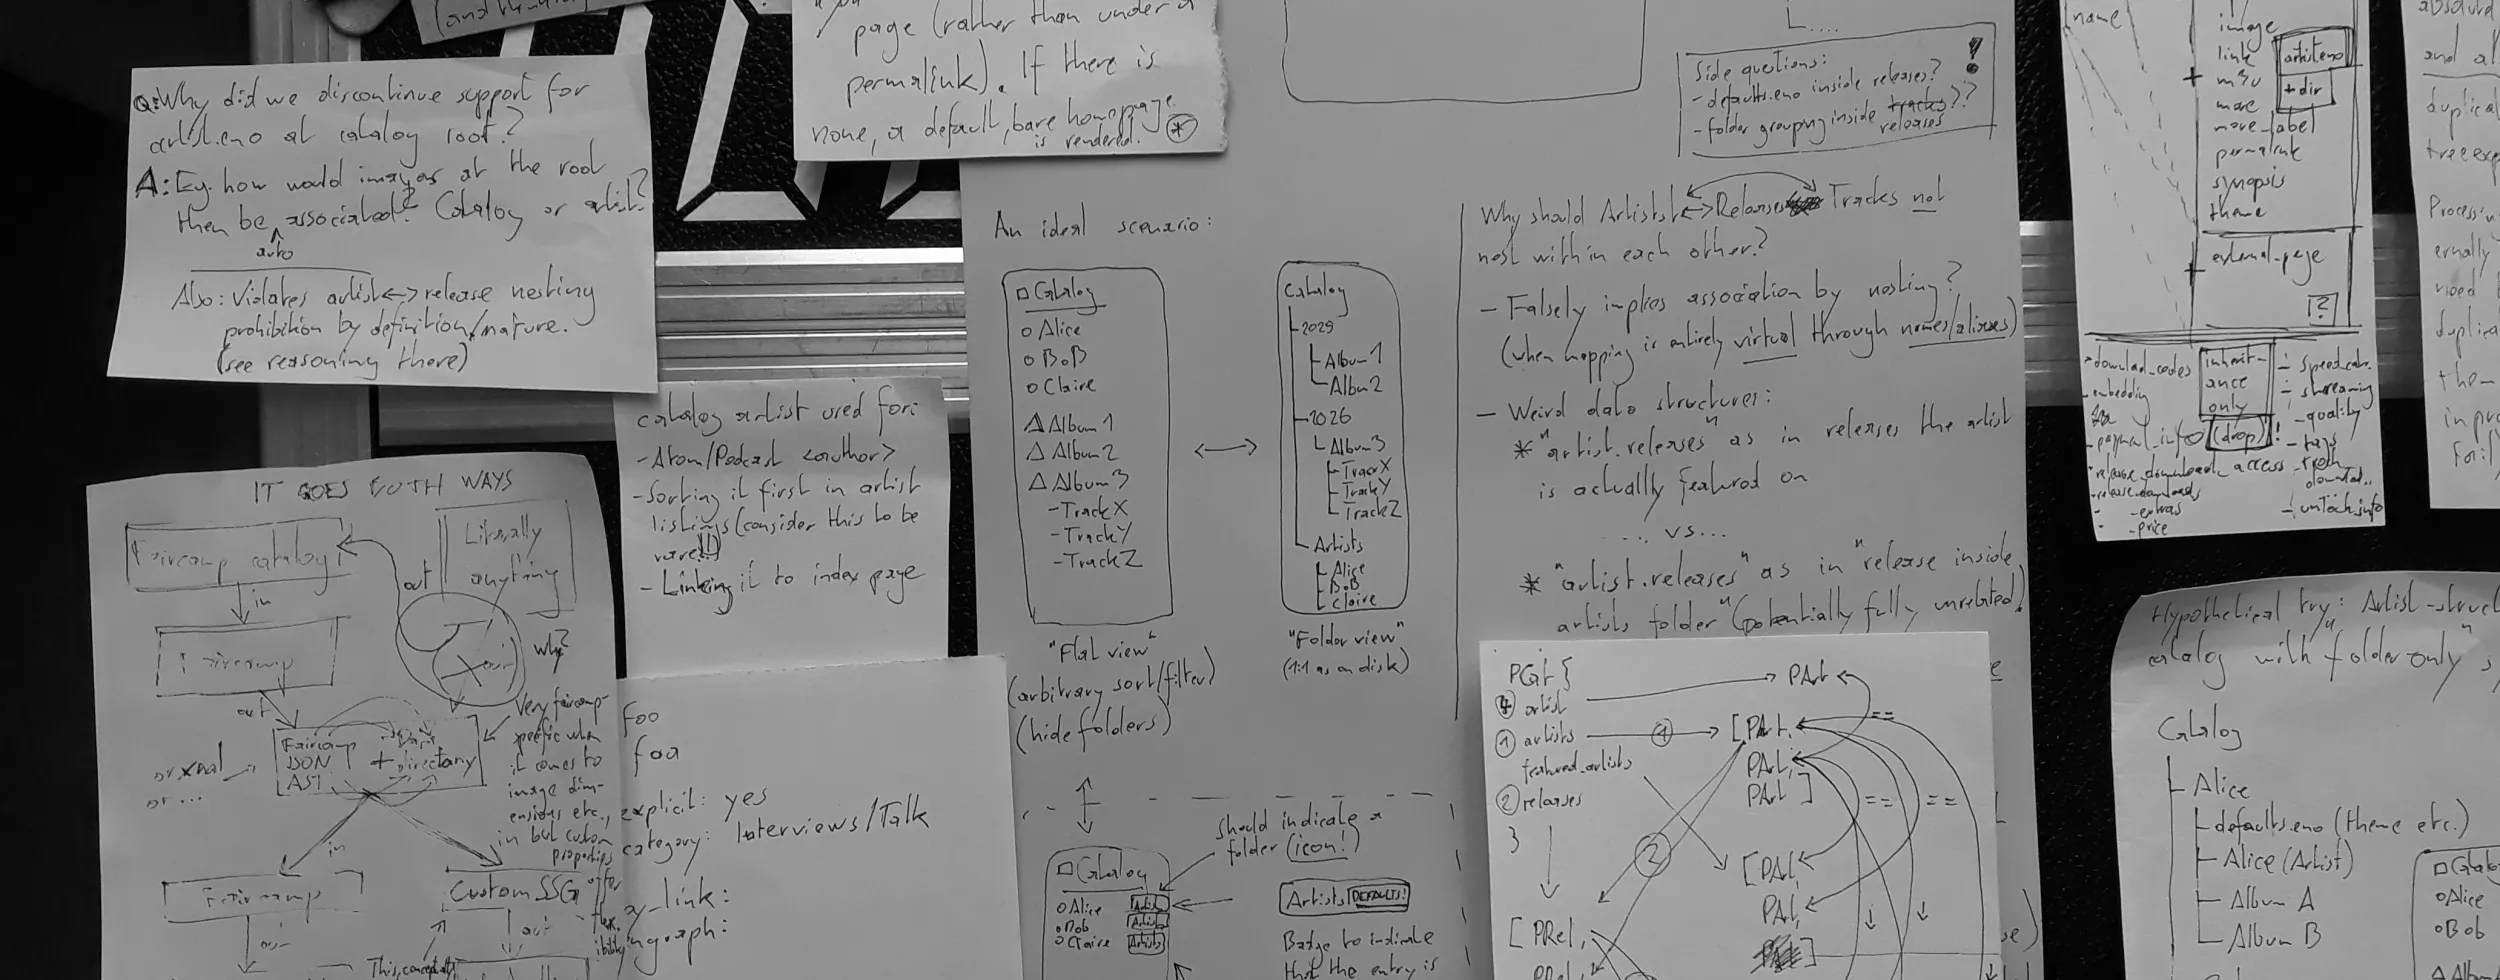 page (rather than under a
permalink). If there is
none, a default, bare homepage
is rendered. *
Q: Why did we discontinue support for
artist.eno at catalog root?
A: Eg. how would images at the root
then be associated? Catalog or artist?
auto
Also: Violates artist <-> release nesting
prohibition by definition/nature.
(see reasoning there)
catalog artist used for:
- Atom/Podcast <author>
- Sorting it first in artist
listings (consider this to be
rare!!)
- Linking it to index page
IT GOES BOTH WAYS
Faircamp catalog
in
Faircamp
out
Literally
anything
out
why?
or xml
or ...
Faircamp
JSON
AST
+ directory
Very faircamp-
specific when
it comes to
image dim-
ensions etc.,
in but custom
properties
offer
flex-
ibility
in
Faircamp
Custom SSG
out
This,
foo
foo
explicit: yes
category: Interviews/Talk
link:
An ideal scenario:
□ Catalog
○ Alice
○ Bob
○ Claire
△ Album 1
△ Album 2
△ Album 3
- Track X
- Track Y
- Track Z
"Flat view"
(arbitrary sort/filter)
(hide folders)
Catalog
2025
Album 1
Album 2
2026
Album 3
Track X
Track Y
Track Z
Artists
Alice
Bob
Claire
"Folder view"
(1:1 as on disk)
□ Catalog
○ Alice Artists
○ Bob Artists
○ Claire Artists
Should indicate a
folder (icon!)
Artists DEFAULTS!
Badge to indicate
that the entry is
L....
Side questions: !
- defaults.eno inside releases?
- folder grouping inside tracks??
releases
Why should Artists <-> Releases Tracks not
nest within each other?
- Falsely implies association by nesting?
(when mapping is entirely virtual through names/aliases)
- Weird data structures:
* "artist.releases" as in releases the artist
is actually featured on
... vs...
* "artist.releases" as in "release inside
artists folder" (potentially fully unrelated)
PCat {
④ artist
① artists
featured_artists
② releases
}
PArt
==
① [PArt,
PArt,
PArt]
== ==
②
[PArt,
PArt,
[PRel,
PRel,
name
image
link
m3u
more
more_label
permalink
synopsis
theme
artist.eno
+ dir
external_page
?
- download_codes
- embedding
- payment_info
- release_download_access
- release_downloads
- extras
- price
inherit-
ance
only
(drop)!
- streaming
- quality
- tags
- track
downl..
- unlock_info
absolute
and al
duplica
Process
ernally
need
duplica
them
Hypothetical try: Artist-struct
catalog with "folder only"
Catalog
Alice
defaults.eno (theme etc.)
Alice (Artist)
Album A
Album B
□ Catalog
○ Alice
○ Bob